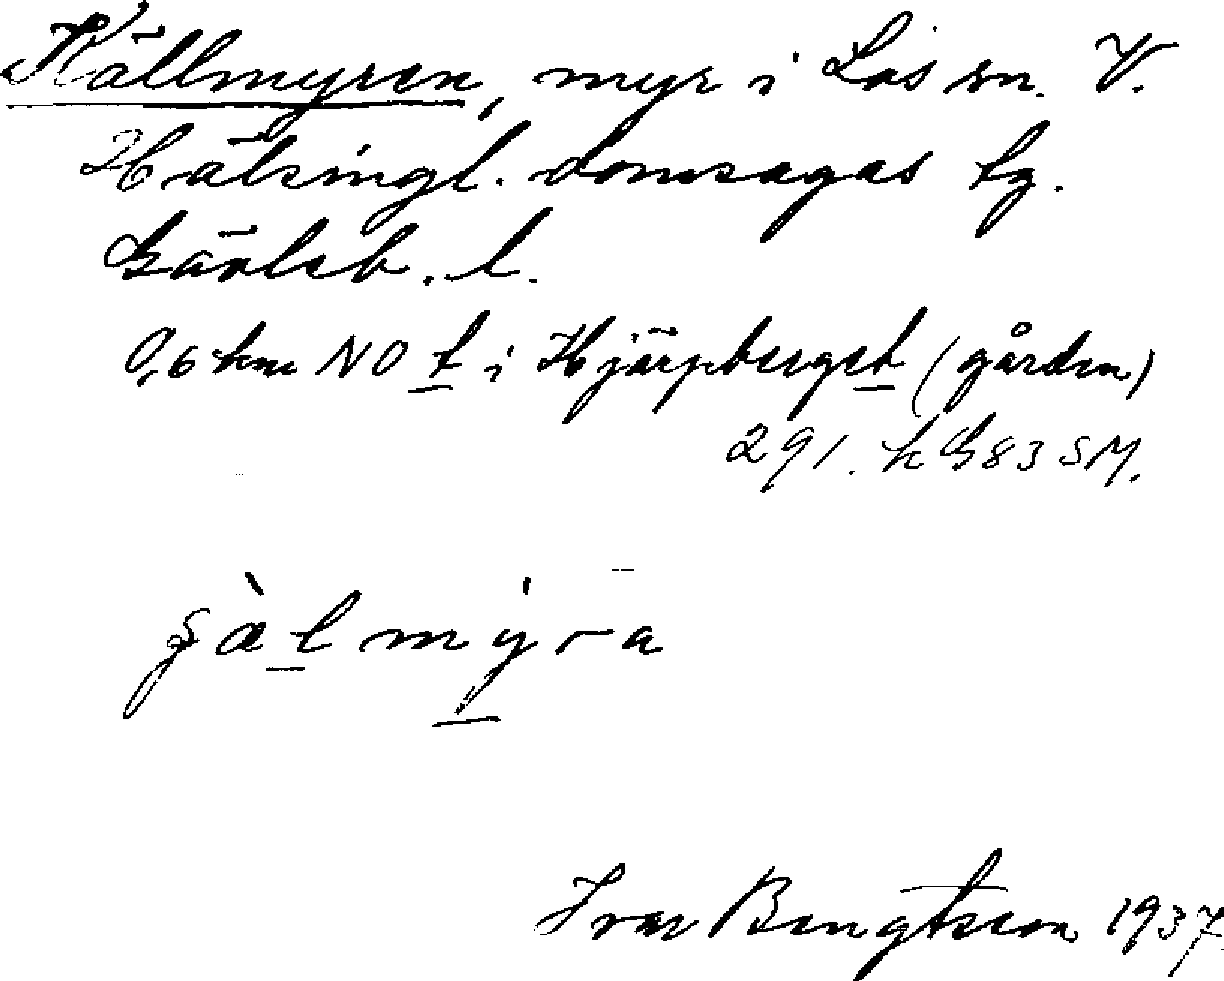 Källmyren, myr i Los sn. V.
Hälsingl. domsagas tg.
Gävleb. l.
0,6 km NO t i Hjärpberget (gården)
291. k G83 SM.
Ivar Bengtsson 1937